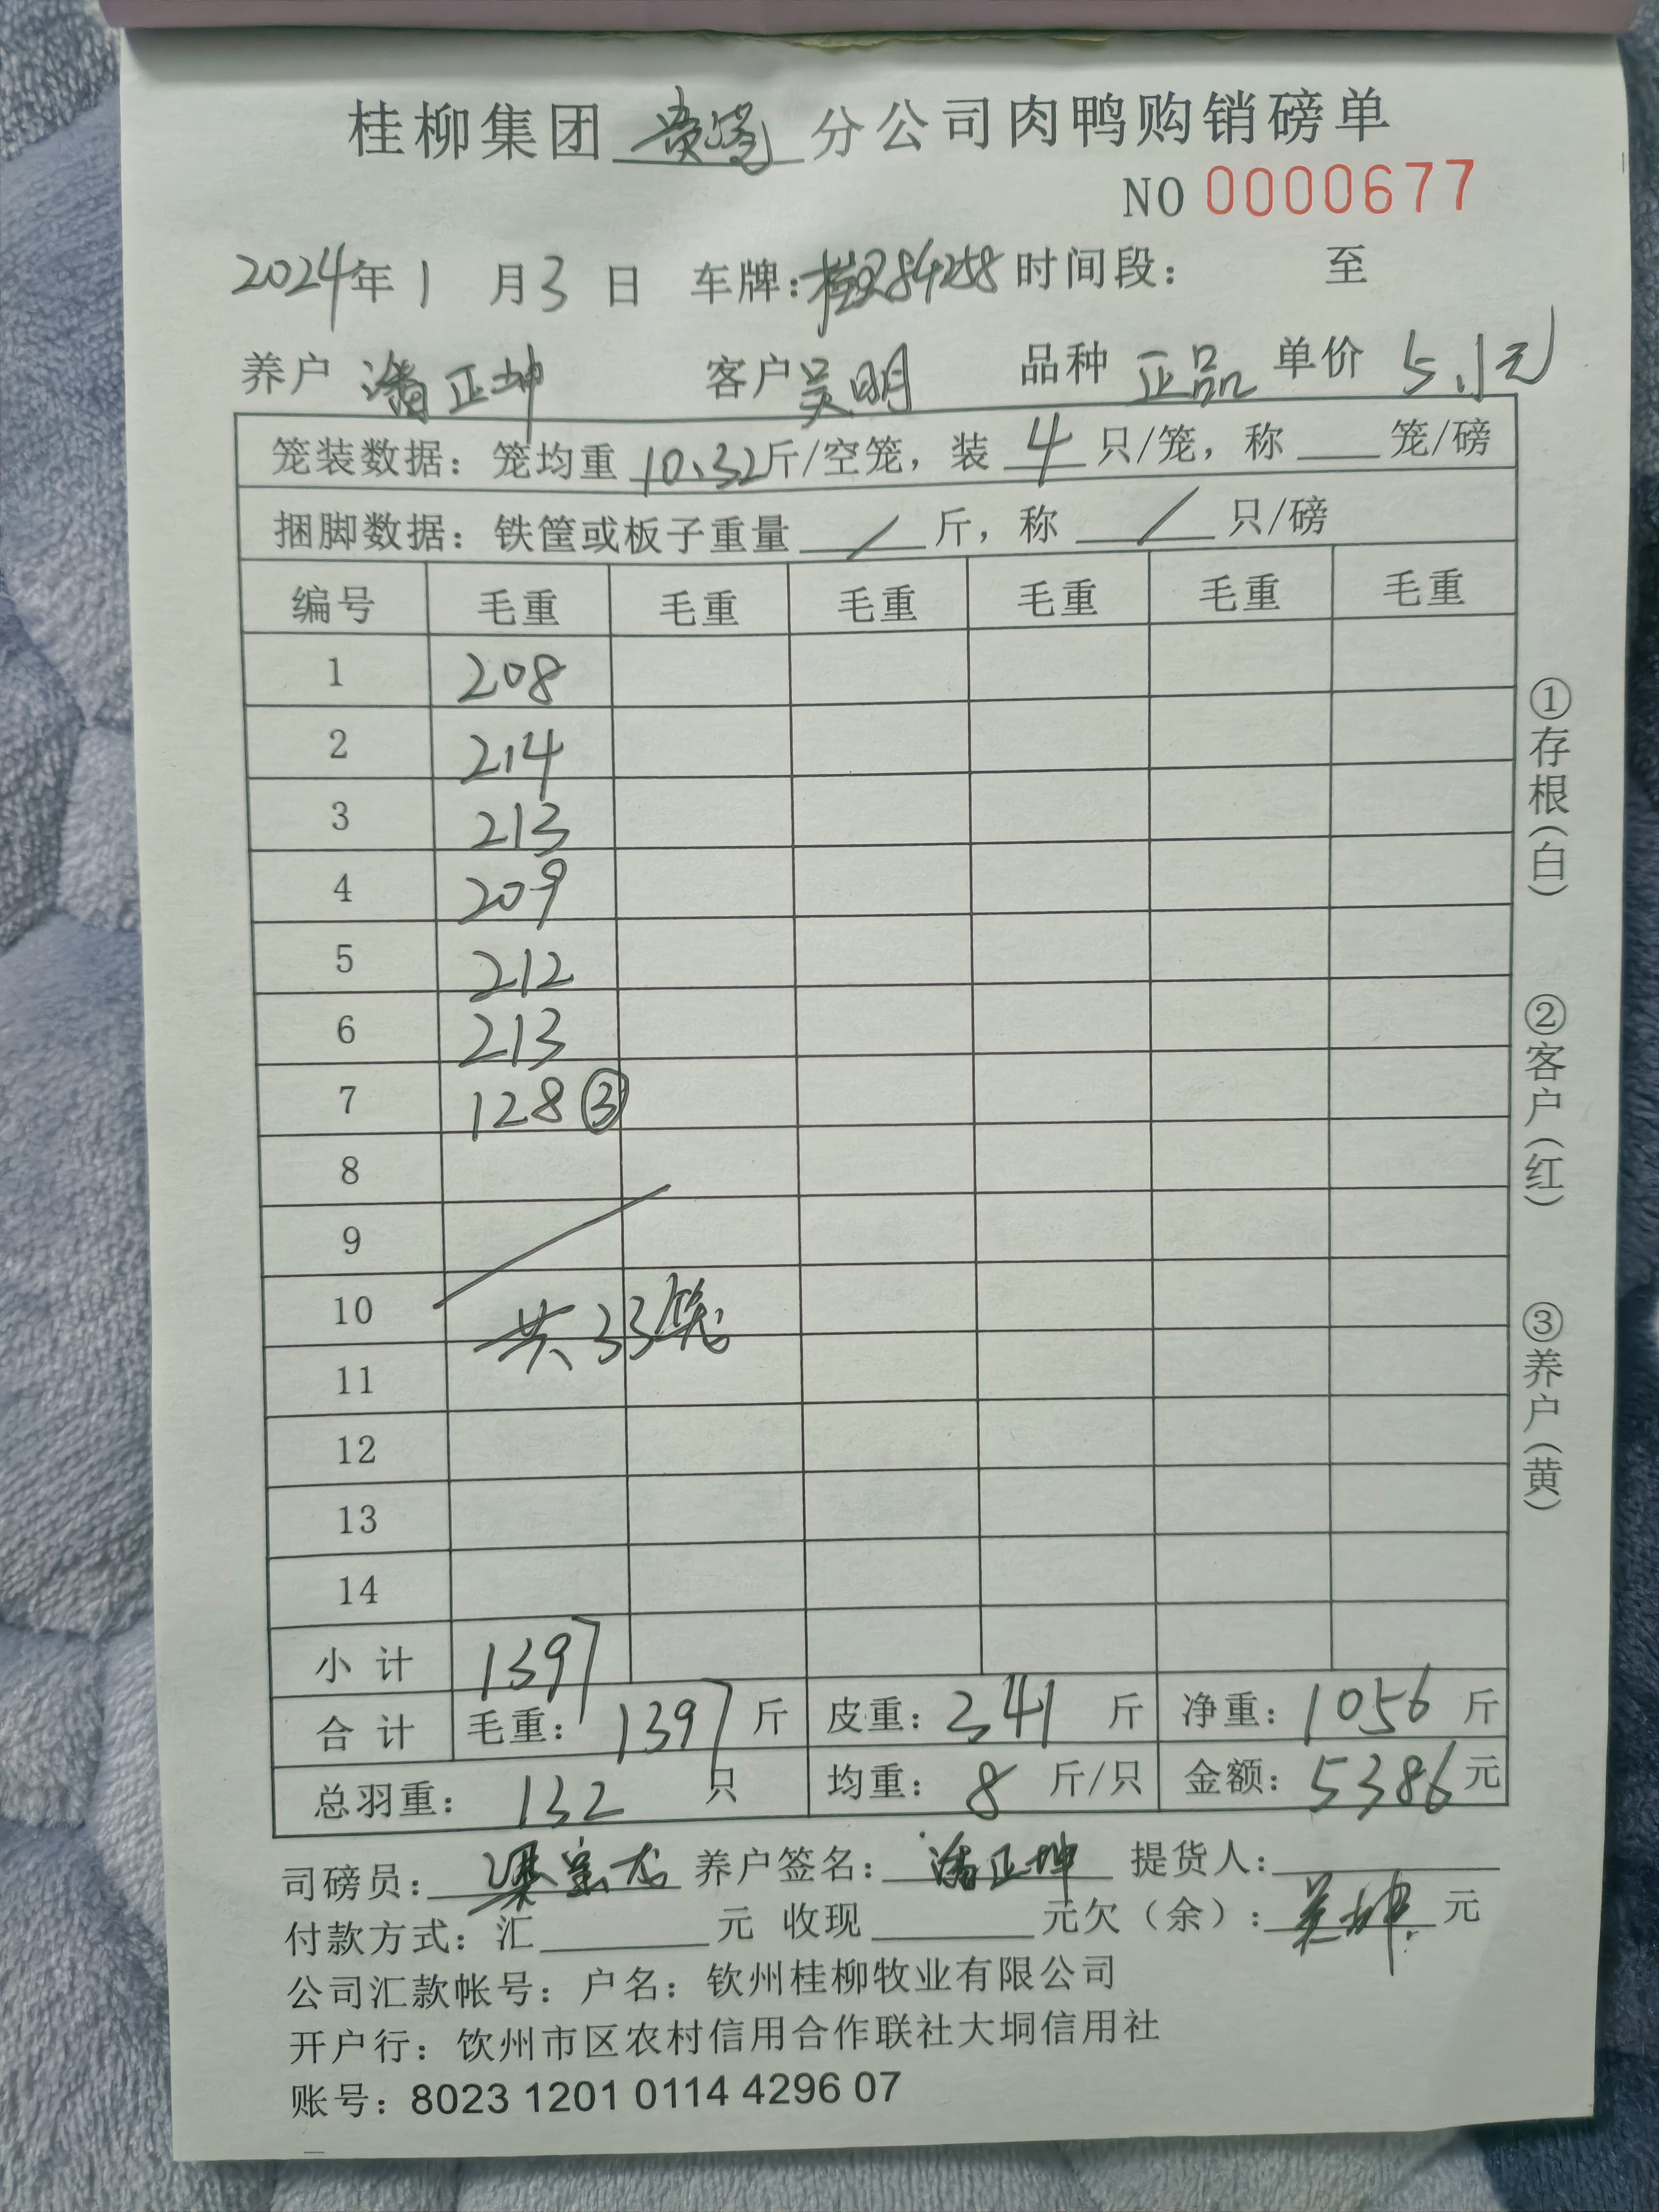 桂柳集团 贵港 分公司肉鸭购销磅单
NO 0000677
2024年 1 月 3 日 车牌: 84258 时间段: 至
养户 潘正坤 客户 吴明 品种 正品 单价 5.1元
笼装数据: 笼均重 10.32 斤/空笼, 装 4 只/笼, 称 笼/磅
捆脚数据: 铁筐或板子重量 / 斤, 称 / 只/磅
编号 毛重 毛重 毛重 毛重 毛重 毛重
1 208
2 214
3 213
4 209
5 212
6 213
7 128 ③
8
9
10 共33笼
11
12
13
14
小 计 1397
合 计 毛重: 1397 斤 皮重: 341 斤 净重: 1056 斤
总羽重: 132 只 均重: 8 斤/只 金额: 5386 元
司磅员: 梁 养户签名: 潘正坤 提货人:
付款方式: 汇 元 收现 元欠(余): 吴坤 元
公司汇款帐号: 户名: 钦州桂柳牧业有限公司
开户行: 钦州市区农村信用合作联社大垌信用社
账号: 8023 1201 0114 4296 07
①存根(白)
②客户(红)
③养户(黄)